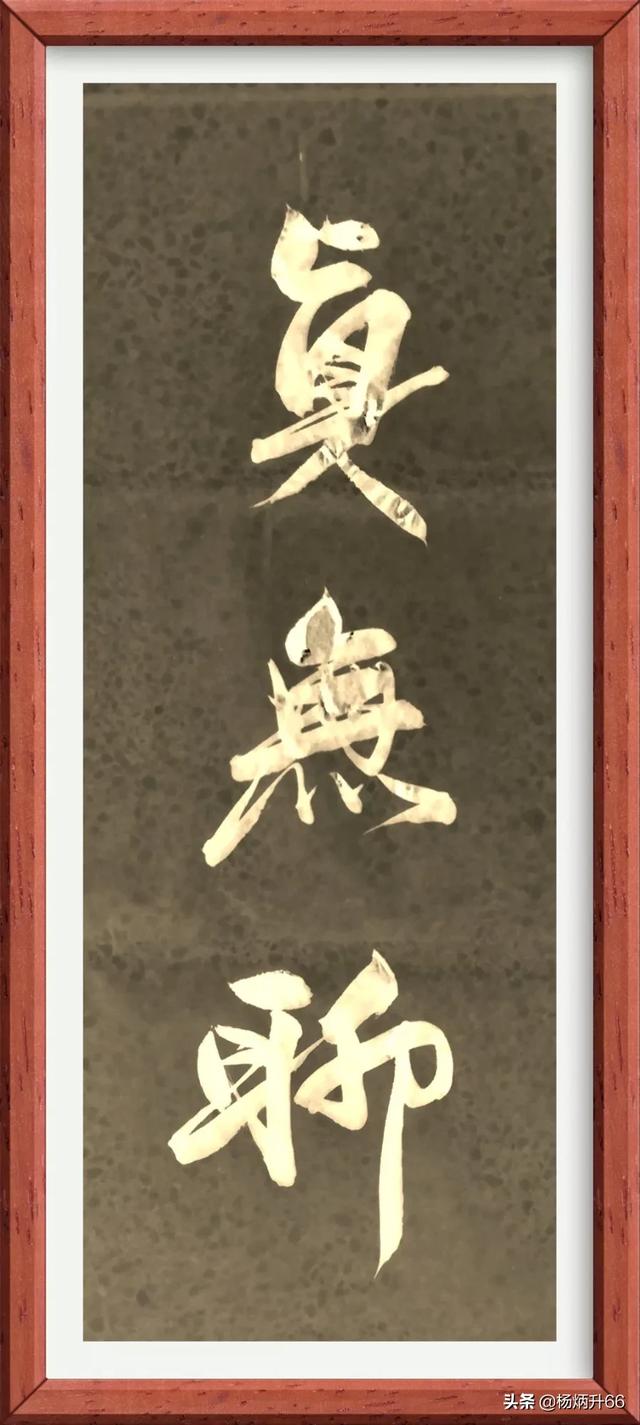 真無聊
头条 @杨炳升66